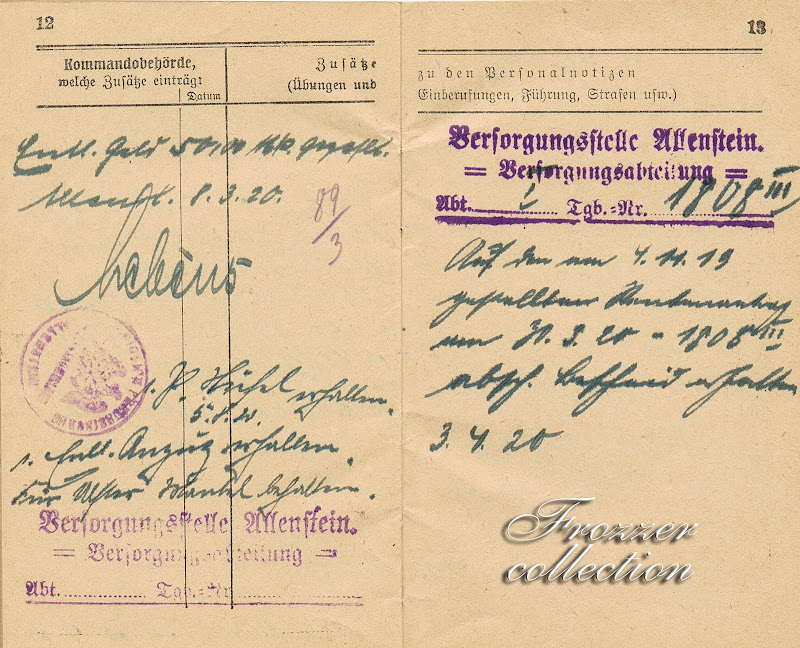 12
Kommandobehörde,
welche Zusätze einträgt
Datum
Zusätze
(Übungen und
Entl. Geld 50,00 Mk.
8.3.20.
89/3
1. P. Stiefel erhalten.
5.8.20.
1. Entl. Anzug erhalten.
Für Ulster Mantel behalten.
Versorgungsstelle Allenstein.
= Versorgungsabteilung =
Abt. ............... Tgb.-Nr.
13
zu den Personalnotizen
Einberufungen, Führung, Strafen usw.)
Versorgungsstelle Allenstein.
= Versorgungsabteilung =
Abt. I Tgb.-Nr. 1808 III
Auf den am 4.11.19
gestellten Rentenantrag
am 31.3.20 - 1808 III
absch. Bescheid erhalten
3.4.20
Frozzer
collection